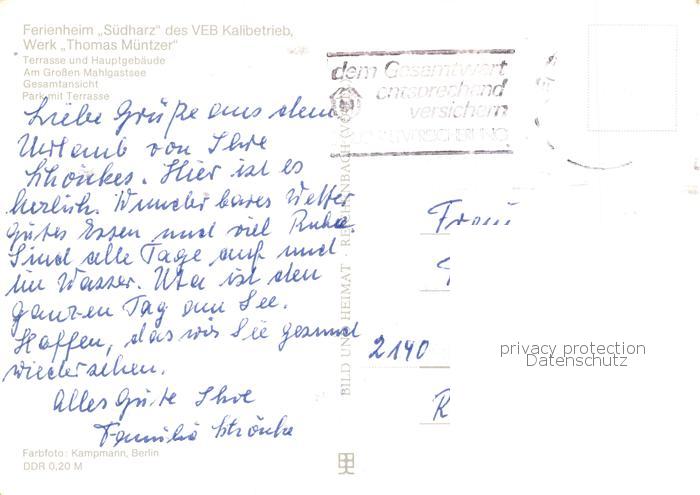 Ferienheim „Südharz" des VEB Kalibetrieb,
Werk „Thomas Müntzer"
Terrasse und Hauptgebäude
Am Großen Mahlgastsee
Gesamtansicht
Park mit Terrasse
Liebe Grüße aus dem
Urlaub von Ihre
Schönkes. Hier ist es
herlich. Wunderbares Wetter
gutes Essen und viel Ruhe.
Sind alle Tage auf und
im Wasser. Uta ist den
ganzen Tag am See.
Hoffen, das wir Sie gesund
wiedersehen.
Alles Gute Ihre
Familie
Farbfoto: Kampmann, Berlin
DDR 0,20 M
BILD UND HEIMAT · REICHENBACH (VOGTL
dem Gesamtwert
entsprechend
versichern
Frau
2140
R
privacy protection
Datenschutz